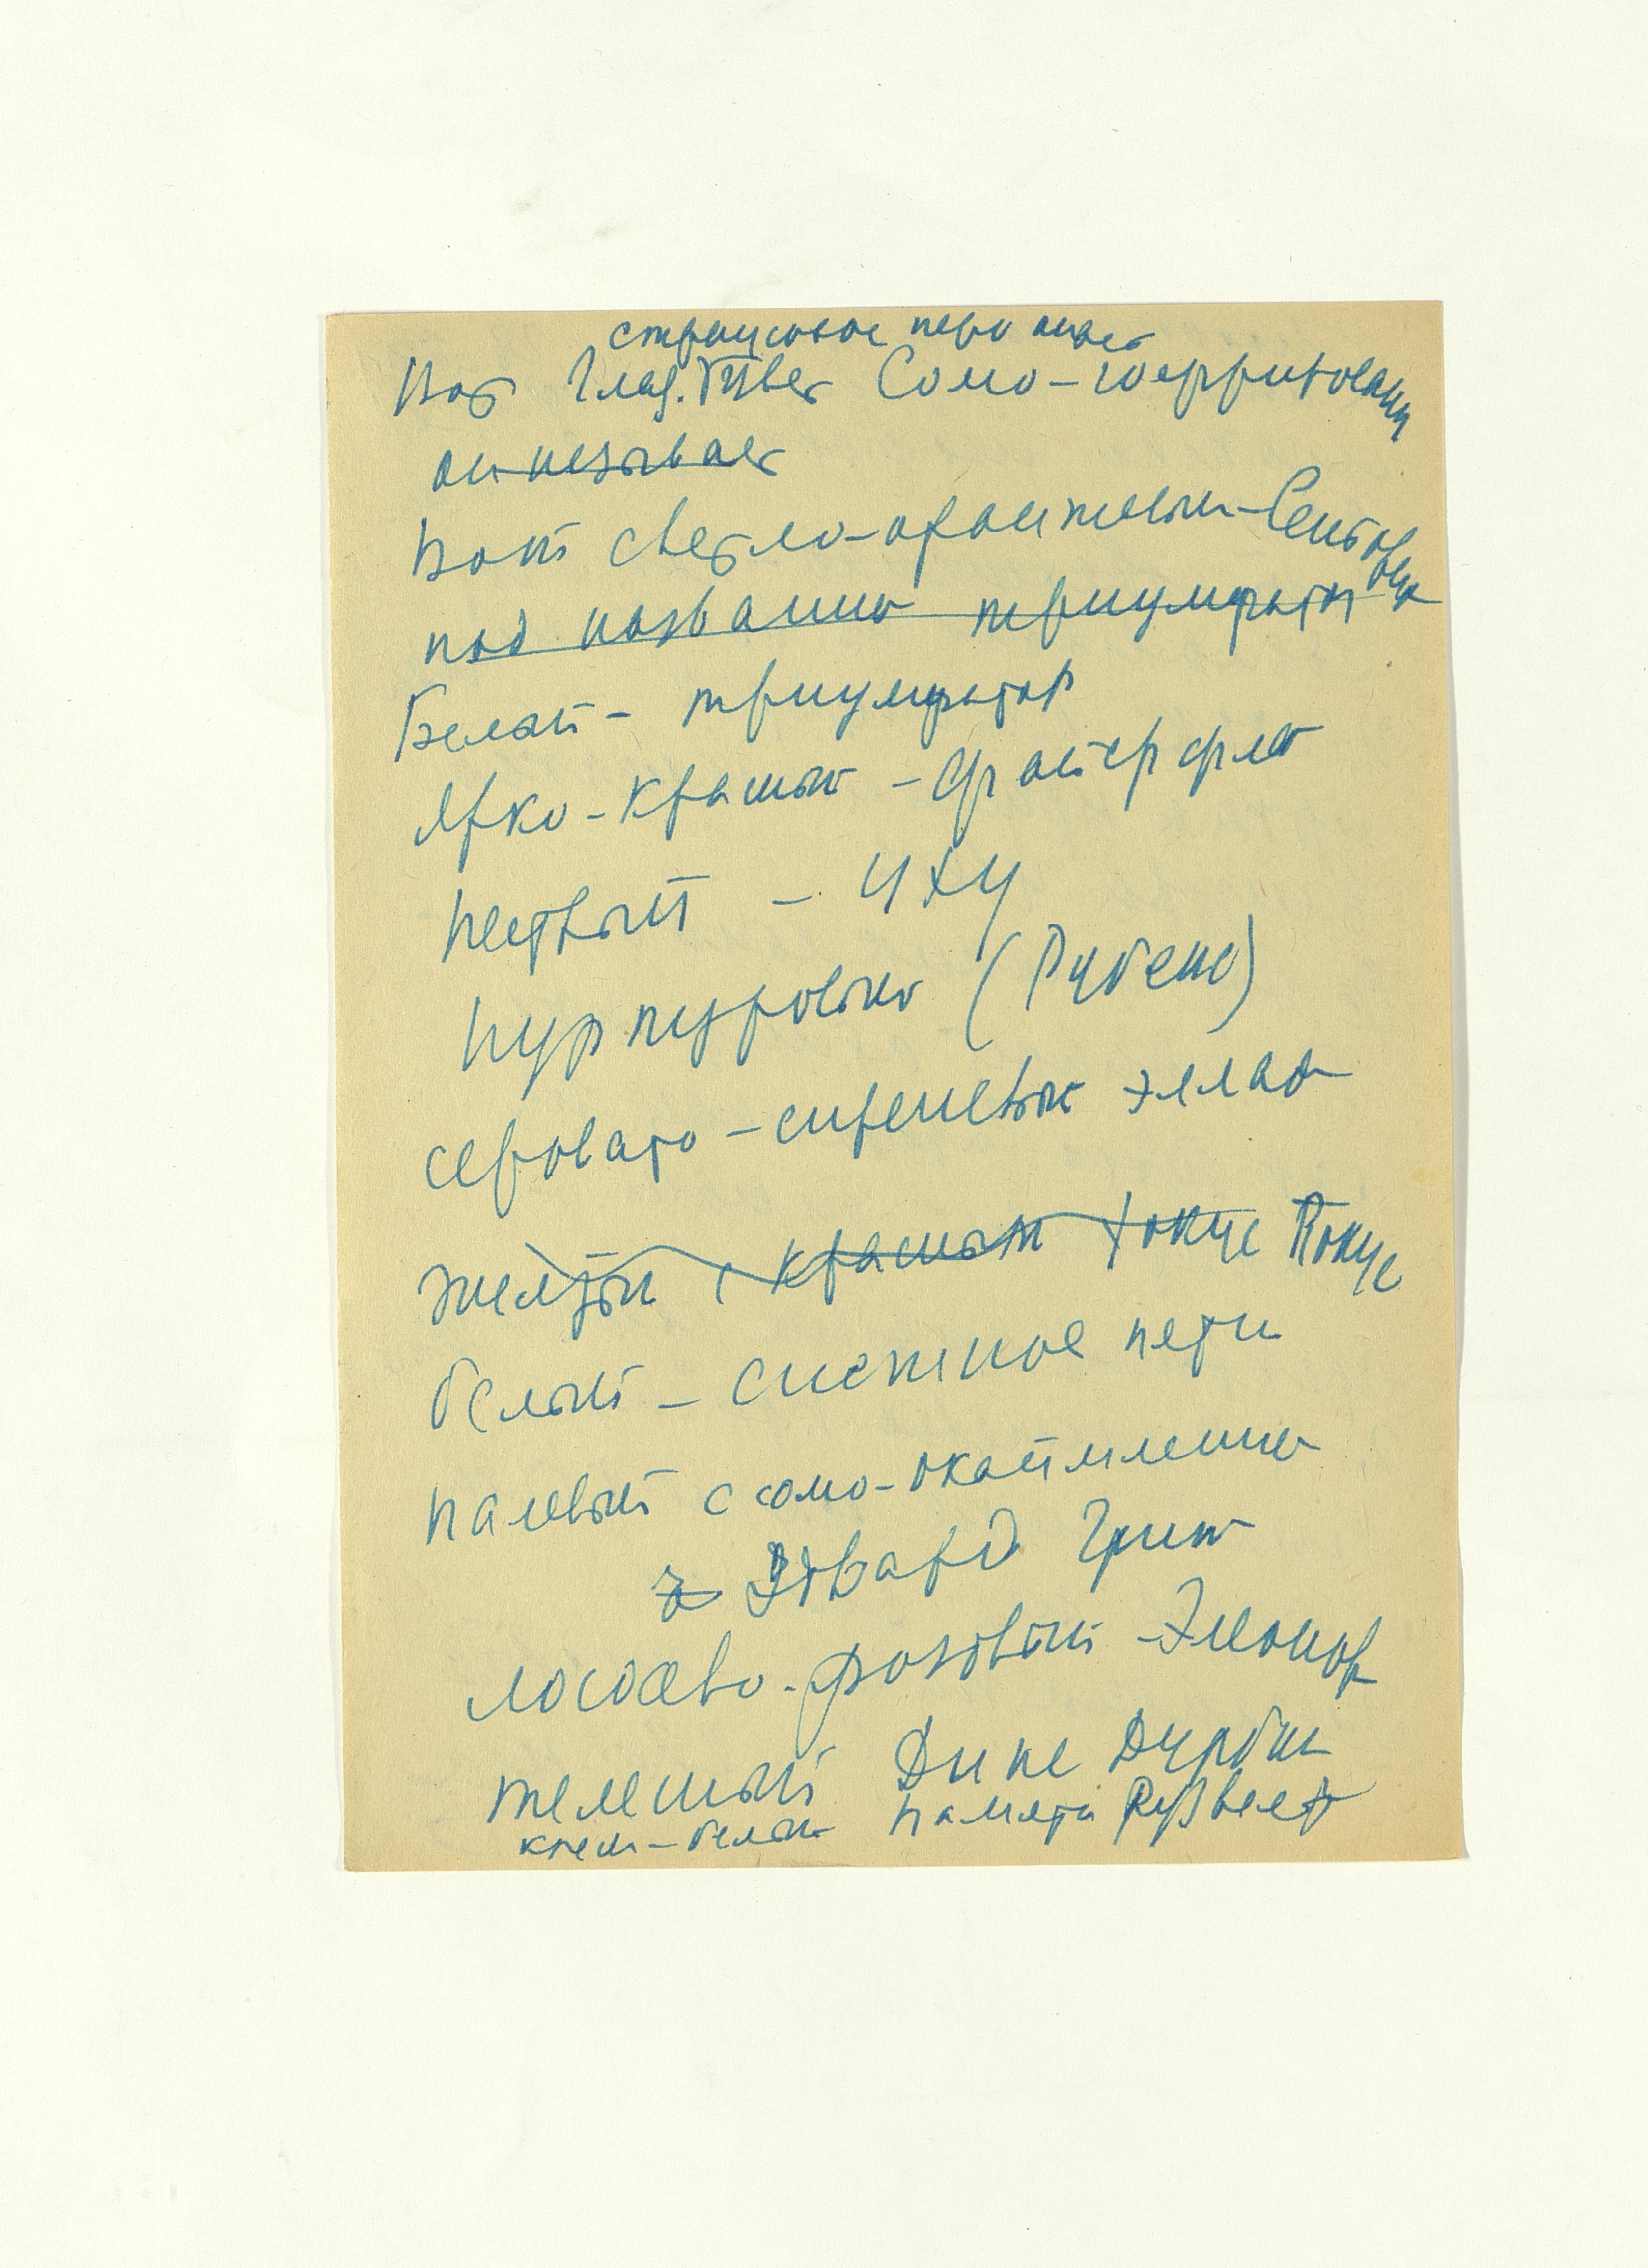 страусовое перо
Вот Глад. Цвет Сомо-гофрирован
он называет
Вот светло-оранжевый - Сенсация
под название триумфатор
Белый - триумфатор
Ярко-красный - файерфлай
Пестрый - Уху
Пурпуровый (Рубенс)
серовато-сиреневый эллад
желтый с красным Хокус Покус
белый - снежное перо
палевый с сомо-окаймлением
Эдвард Григ
лососево-розовый - Элеонор
телесный Дине Дурбин
крем-белый памяти Рузвельт